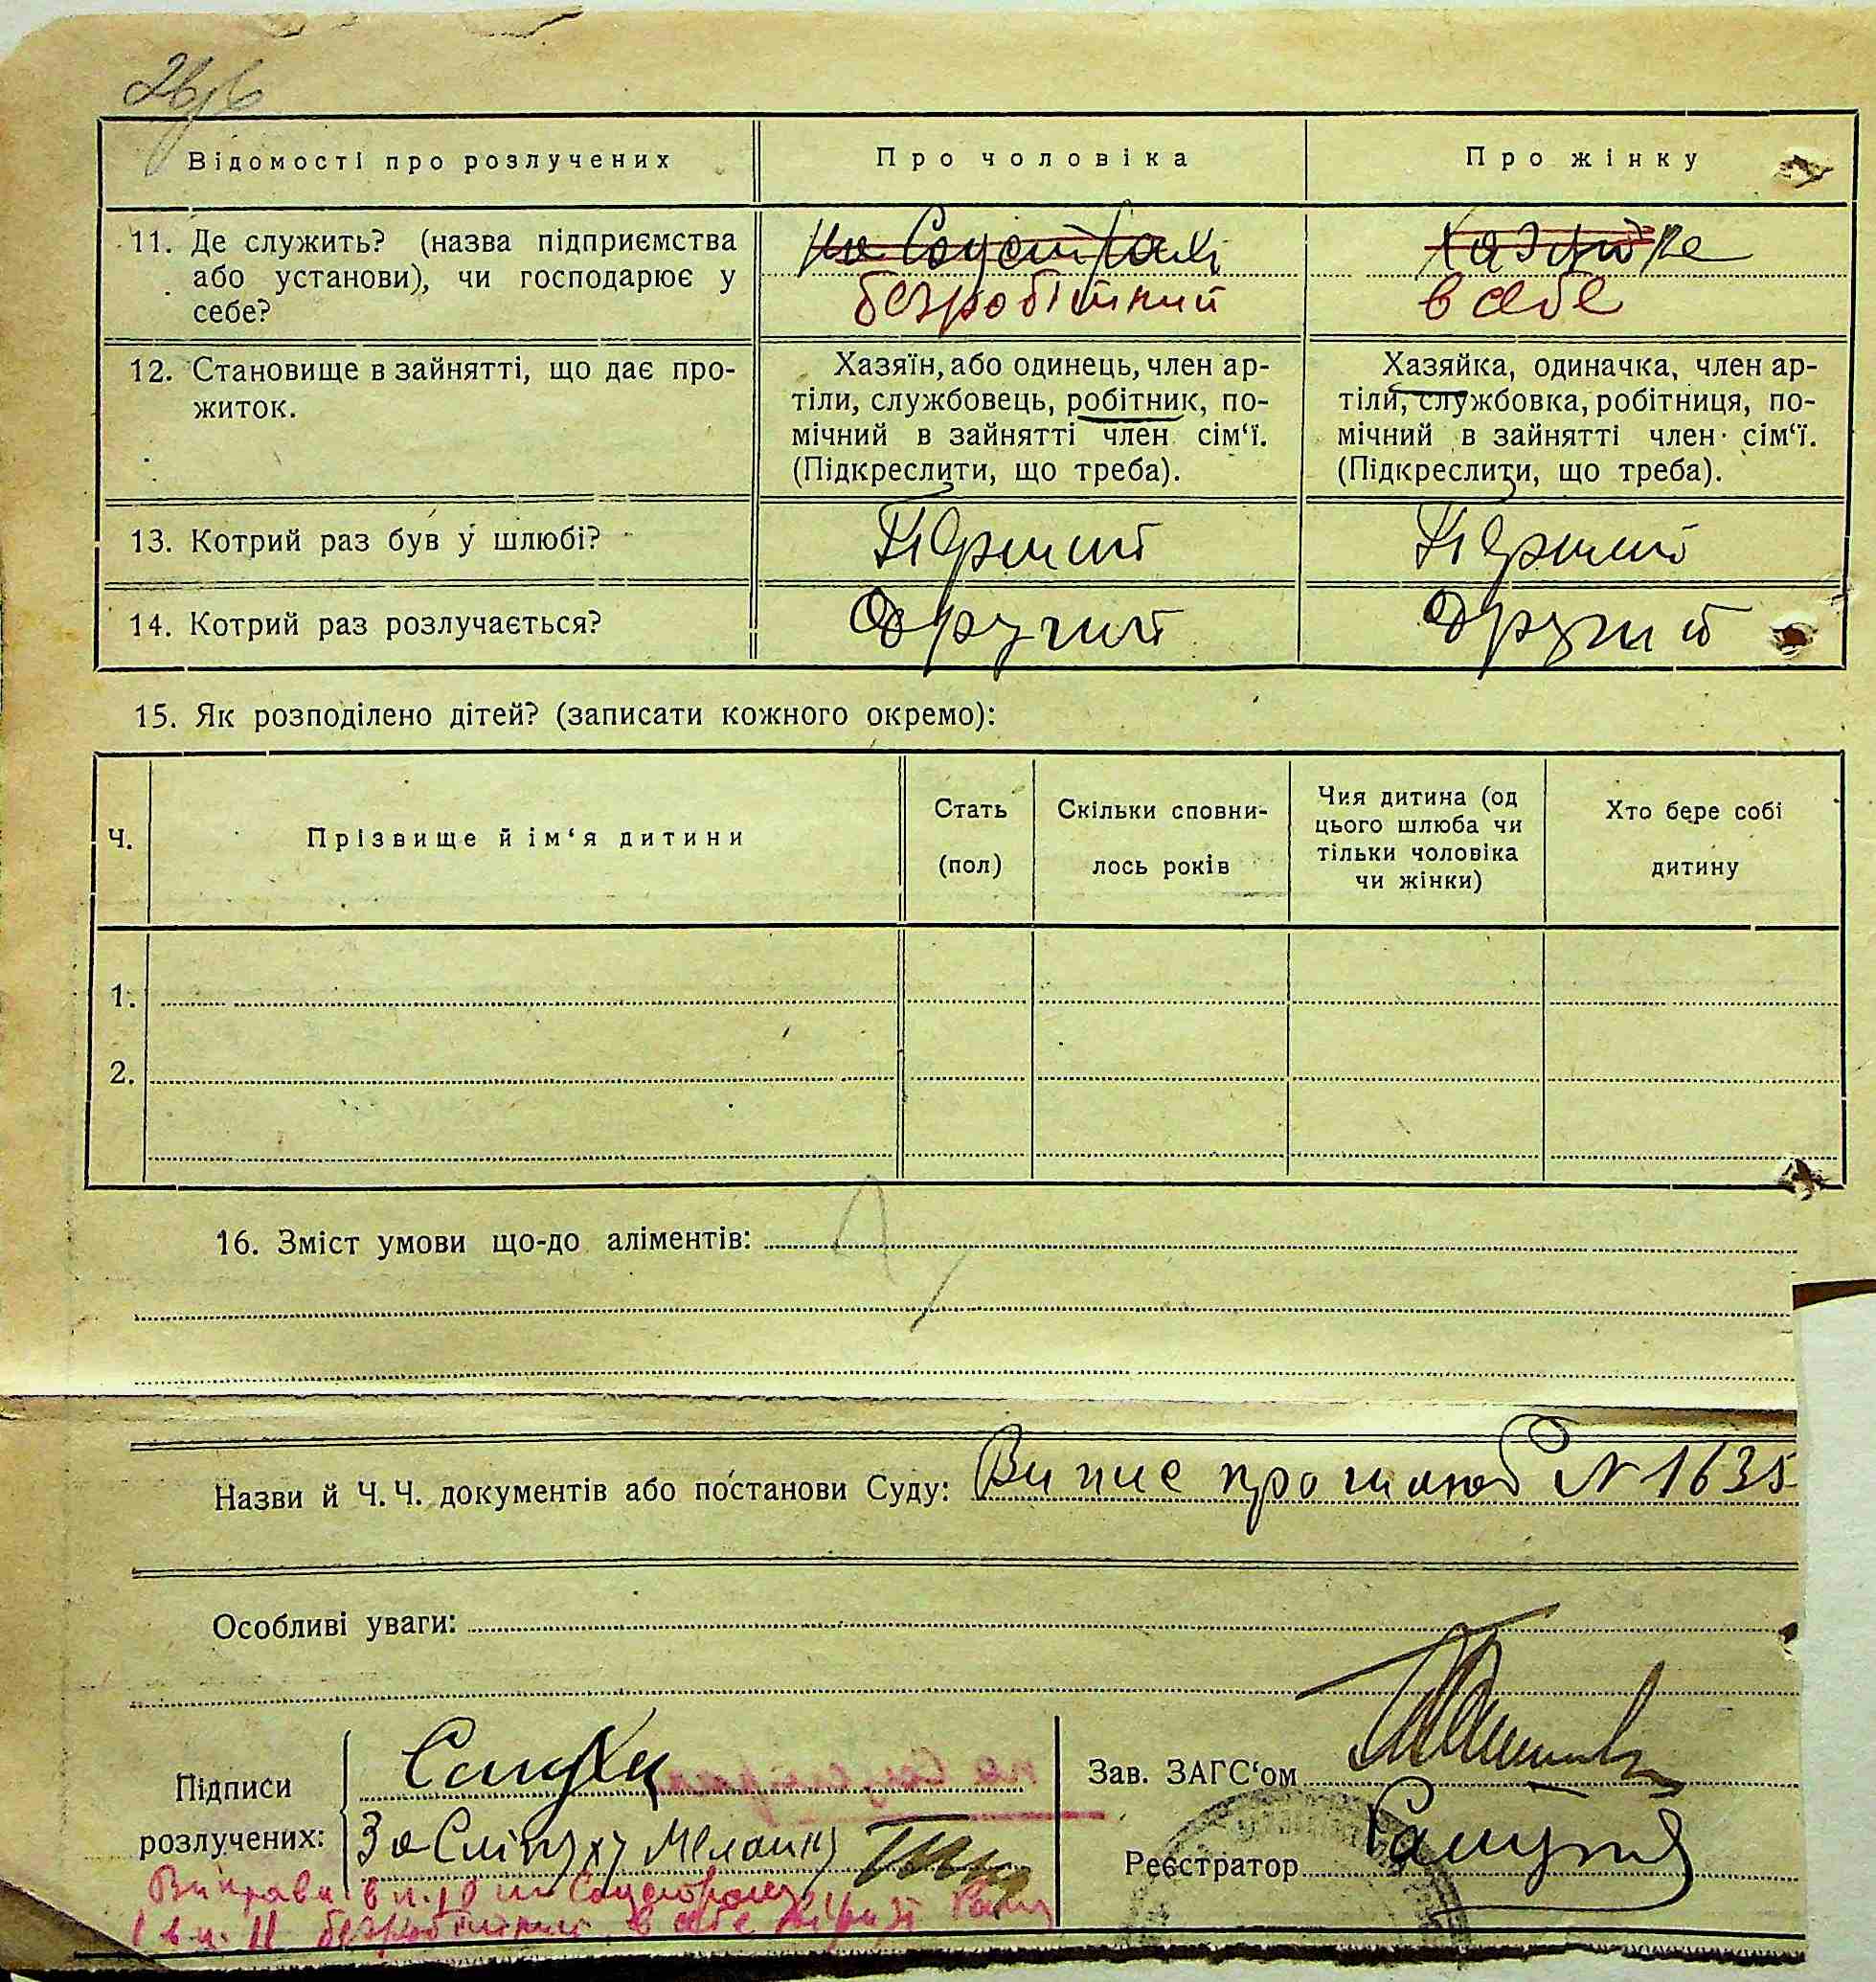 Відомості про розлучених
Про чоловіка
Про жінку
11. Де служить? (назва підприємства
або установи), чи господарює у
себе?
на Соцстрахі
безробітний
Хазяйка
в себе
12. Становище в зайнятті, що дає про-
житок.
Хазяїн, або одинець, член ар-
тіли, службовець, робітник, по-
мічний в зайнятті член сім‘ї.
(Підкреслити, що треба).
Хазяйка, одиначка, член ар-
тіли, службовка, робітниця, по-
мічний в зайнятті член сім‘ї.
(Підкреслити, що треба).
13. Котрий раз був у шлюбі?
Перший
Перший
14. Котрий раз розлучається?
Другий
Другий
15. Як розподілено дітей? (записати кожного окремо):
Ч.
Прізвище й ім‘я дитини
Стать
(пол)
Скільки сповни-
лось років
Чия дитина (од
цього шлюба чи
тільки чоловіка
чи жінки)
Хто бере собі
дитину
1.
2.
16. Зміст умови що-до аліментів:
Назви й Ч. Ч. документів або постанови Суду: Випис про шлюб N 1635
Особливі уваги:
Підписи
розлучених:
За Сліпуху Меланю
Зав. ЗАГС‘ом
Реєстратор
в п. 10
і в п. 11 безробітний в себе